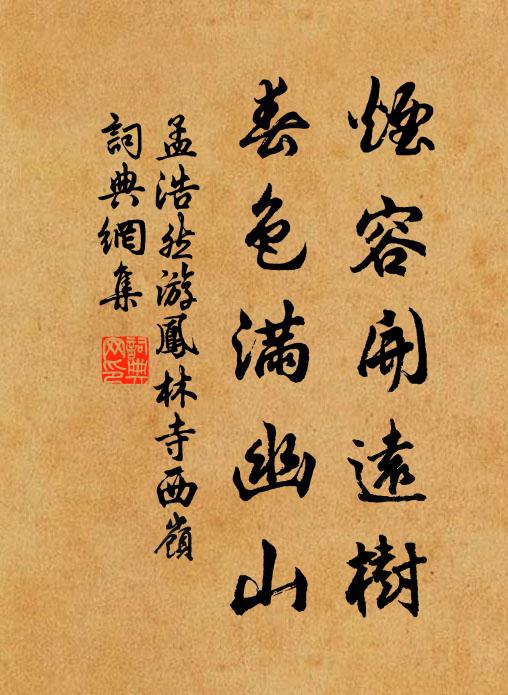 煙容開遠樹
春色滿幽山
孟浩然游鳳林寺西嶺
詞典網集
詞典
网印